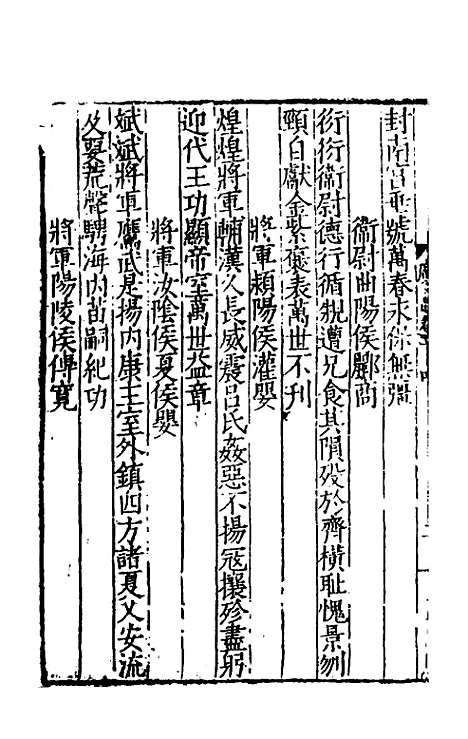 封南宮垂號萬春永保無彊
衞尉曲陽侯酈商
衍衍衞尉德行循䂓遭兄食其隕歿於齊橫耻愧景刎
頸自獻金紫褒表萬世不刋
將軍潁陽侯灌嬰
煌煌將軍輔漢久長威震呂氏姦惡不揚冦攘殄盡躬
迎代王功顯帝室萬世益章
將軍汝隂侯夏侯嬰
斌斌將軍鷹武是揚内康王室外鎮四方諸夏乂安流
及要荒聲騁海内苗嗣紀功
將軍陽陵侯傅寛